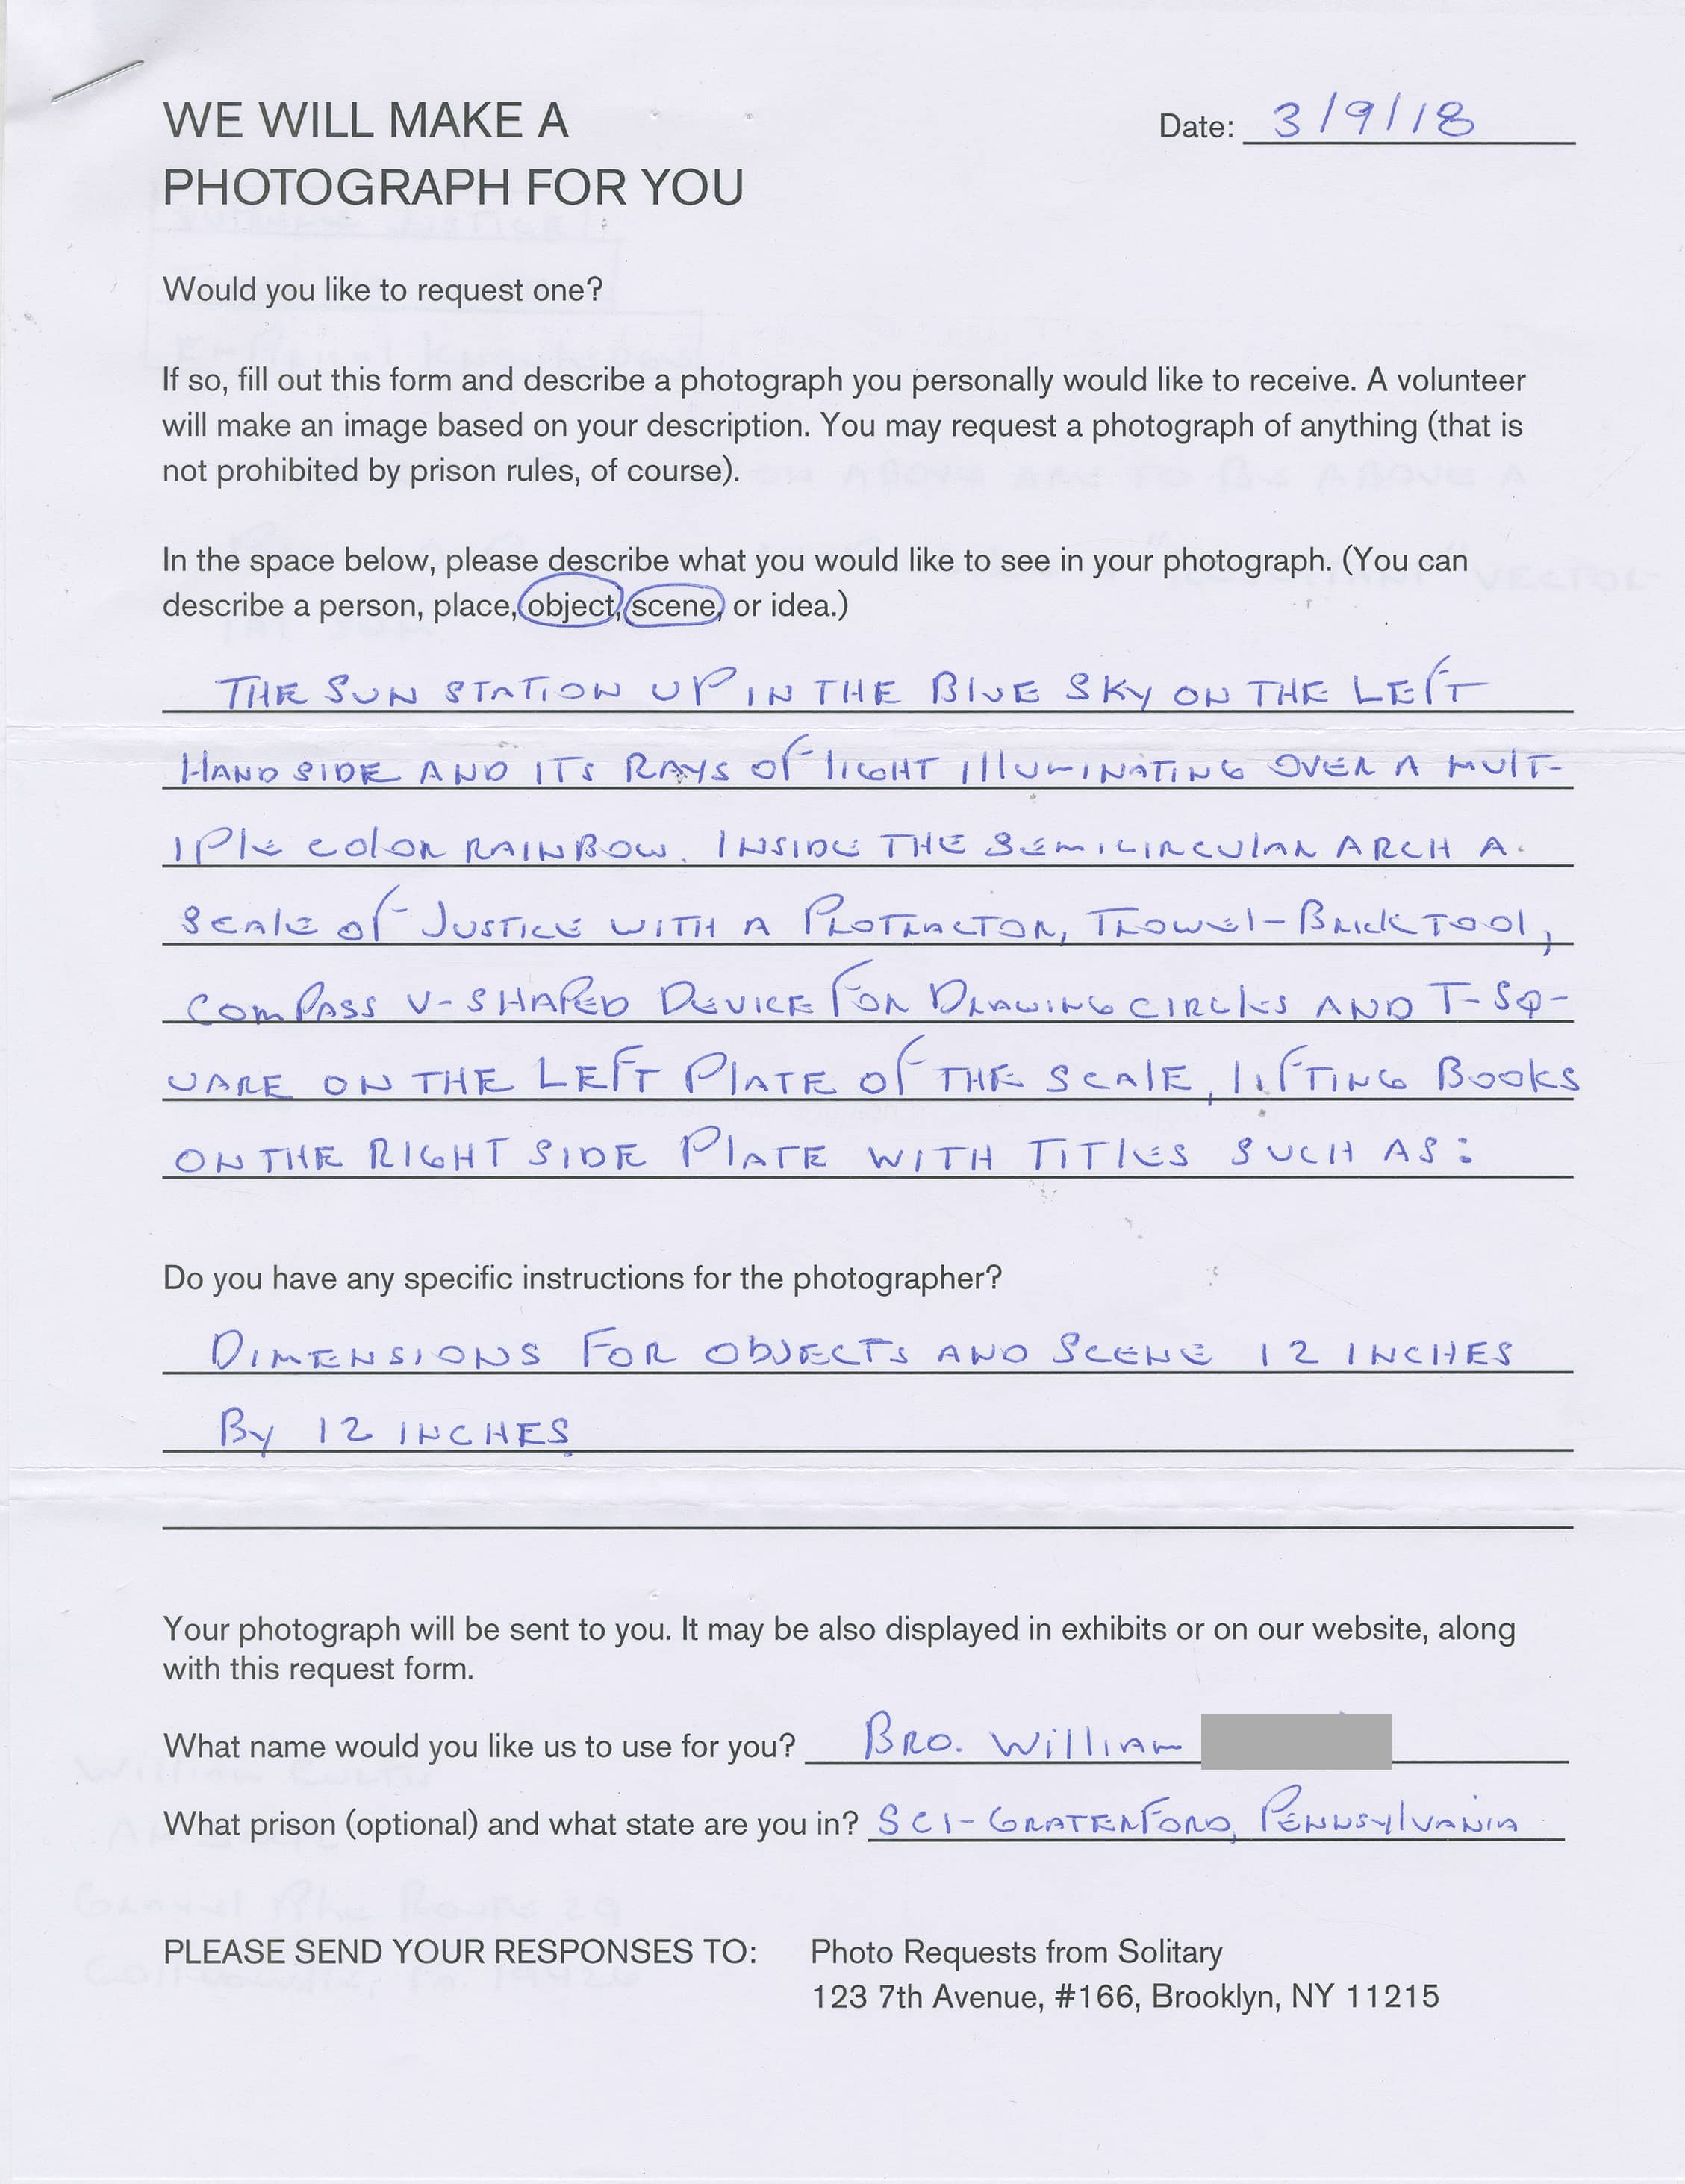 WE WILL MAKE A
PHOTOGRAPH FOR YOU
Date: 3/9/18
Would you like to request one?
If so, fill out this form and describe a photograph you personally would like to receive. A volunteer
will make an image based on your description. You may request a photograph of anything (that is
not prohibited by prison rules, of course).
In the space below, please describe what you would like to see in your photograph. (You can
describe a person, place, object, scene, or idea.)
THE SUN STATION UP IN THE BlUE SKY ON THE LEFT
HAND SIDE AND ITS RAYS Of lIGHT IllUMINATING OVER A MUlT-
IPlE COlOR RAINBOW. INSIDE THE SEMICIRCUlAR ARCH A
SCAlE Of JUSTICE WITH A PROTRACTOR, TROWEl-BRICK TOOl,
COMPASS V-SHAPED DEVICE FOR DRAWING CIRClES AND T-SQ-
UARE ON THE LEFT PlATE Of THE SCAlE, lIfTING BOOKS
ON THE RIGHT SIDE PlATE WITH TITlES SUCH AS:
Do you have any specific instructions for the photographer?
DIMENSIONS FOR OBJECTS AND SCENE 12 INCHES
By 12 INCHES.
Your photograph will be sent to you. It may be also displayed in exhibits or on our website, along
with this request form.
What name would you like us to use for you? BRO. WillIAM
What prison (optional) and what state are you in? SCI-GRATERFORD, PENNSYlVANIA
PLEASE SEND YOUR RESPONSES TO: Photo Requests from Solitary
123 7th Avenue, #166, Brooklyn, NY 11215